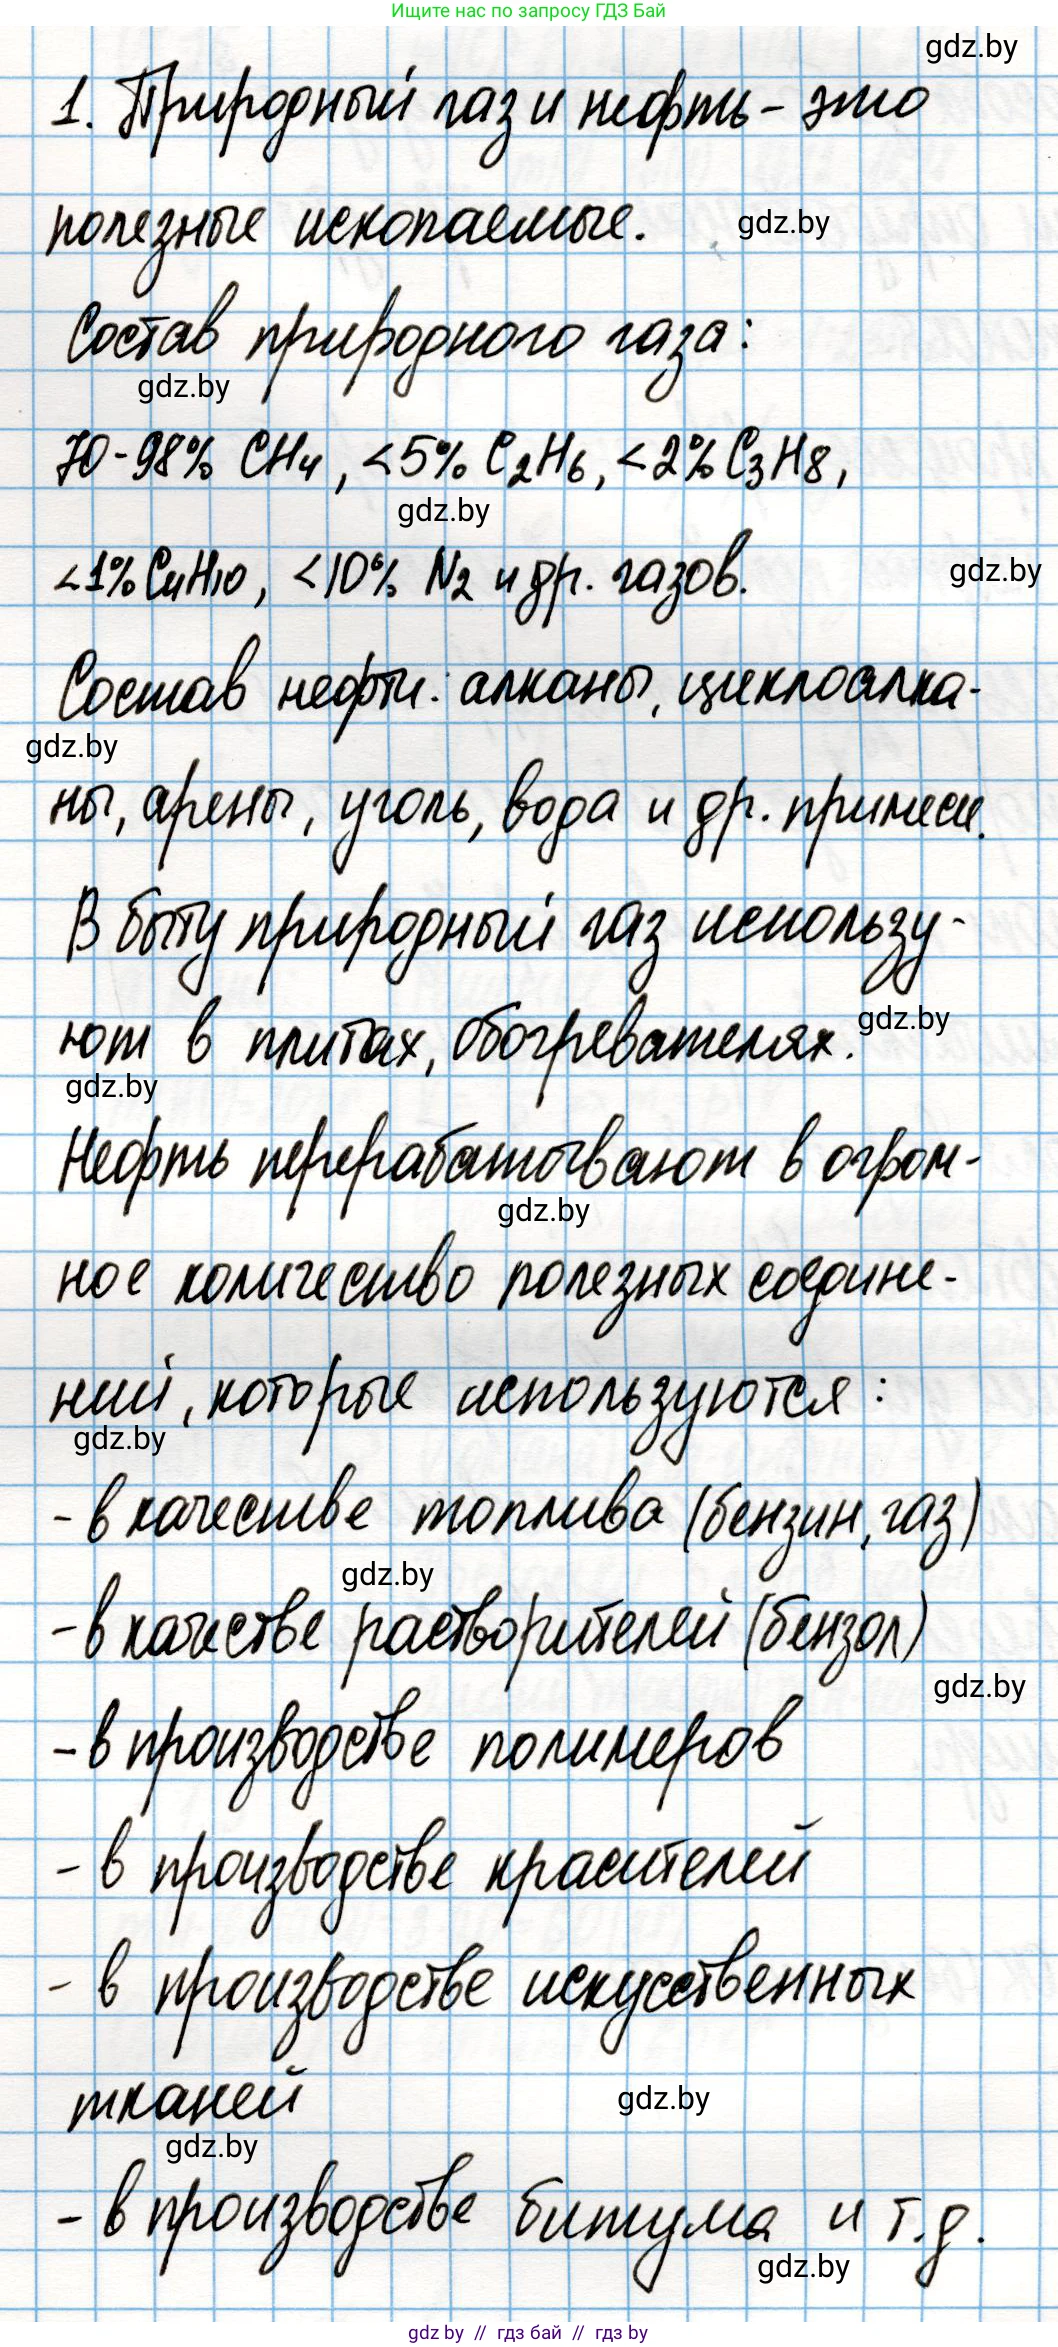 Ищите нас по запросу ГДЗ Бай
gdz.by
1. Природный газ и нефть - это
полезные ископаемые.
gdz.by
Состав природного газа:
gdz.by
70-98% CH4, <5% C2H6, <2% C3H8,
gdz.by
<1% C4H10, <10% N2 и др. газов.
gdz.by
Состав нефти: алканы, циклоалка-
gdz.by
ны, арены, уголь, вода и др. примеси.
В быту природный газ использу-
ют в плитах, обогревателях.
gdz.by
gdz.by
Нефть перерабатывают в огром-
gdz.by
ное количество полезных соедине-
ний, которые используются:
gdz.by
- в качестве топлива (бензин, газ)
gdz.by
- в качестве растворителей (бензол)
gdz.by
- в производстве полимеров
- в производстве красителей
- в производстве искусственных
тканей
gdz.by
gdz.by
- в производстве битума и т.д.
gdz.by
gdz by // гдз бай // гдз by